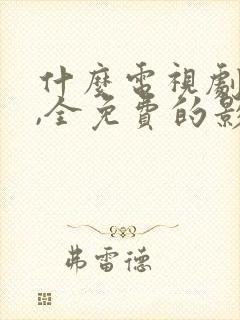 什麼電視劇
,全免費的影
弗雷德